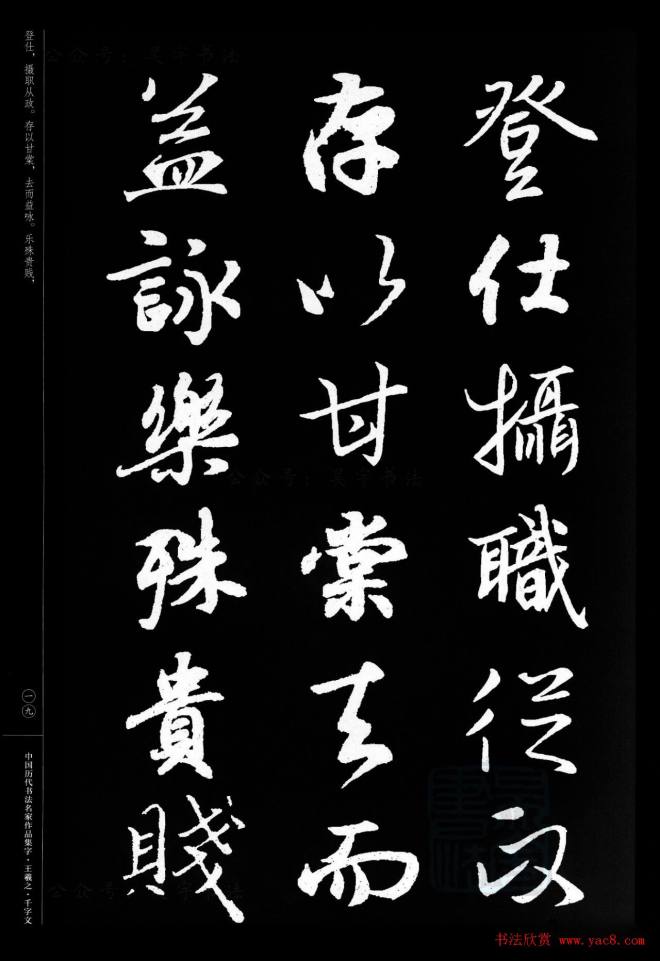 登仕攝職從政
存以甘棠去而
益詠樂殊貴賤
登仕，摄职从政。存以甘棠，去而益咏。乐殊贵贱，
一九
中国历代书法名家作品集字·王羲之·千字文
公众号：昊宇书法
公众号：昊宇书法
公众号：昊宇书法
书法欣赏 www.yac8.com